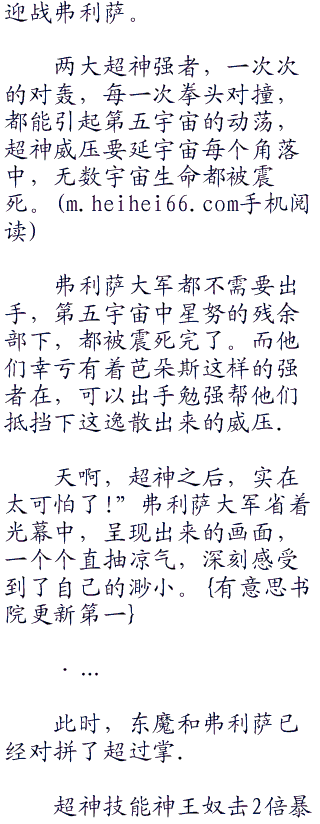 迎战弗利萨。
两大超神强者，一次次
的对轰，每一次拳头对撞，
都能引起第五宇宙的动荡，
超神威压要延宇宙每个角落
中，无数宇宙生命都被震
死。(m.heihei66.com手机阅
读)
弗利萨大军都不需要出
手，第五宇宙中星努的残余
部下，都被震死完了。而他
们幸亏有着芭朵斯这样的强
者在，可以出手勉强帮他们
抵挡下这逸散出来的威压.
天啊，超神之后，实在
太可怕了!”弗利萨大军省着
光幕中，呈现出来的画面，
一个个直抽凉气，深刻感受
到了自己的渺小。{有意思书
院更新第一}
· …
此时，东魔和弗利萨已
经对拼了超过掌.
超神技能神王奴击2倍暴